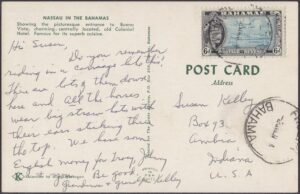 NASSAU IN THE BAHAMAS
Showing the picturesque entrance to Buena
Vista, charming, centrally located, old Colonial
Hotel. Famous for its superb cuisine.
Hi Susan,
Do you remember
riding in a carriage like this?
There are lots of them down
here and all the horses
wear big straw hats with
their ears sticking thru
the top. We have some
English money for you.
Be good
POST CARD
Address
Susan Kelley
Box 73
Ambia
Indiana
U.S.A
BAHAMAS
6d
6d
BAHAMA
K